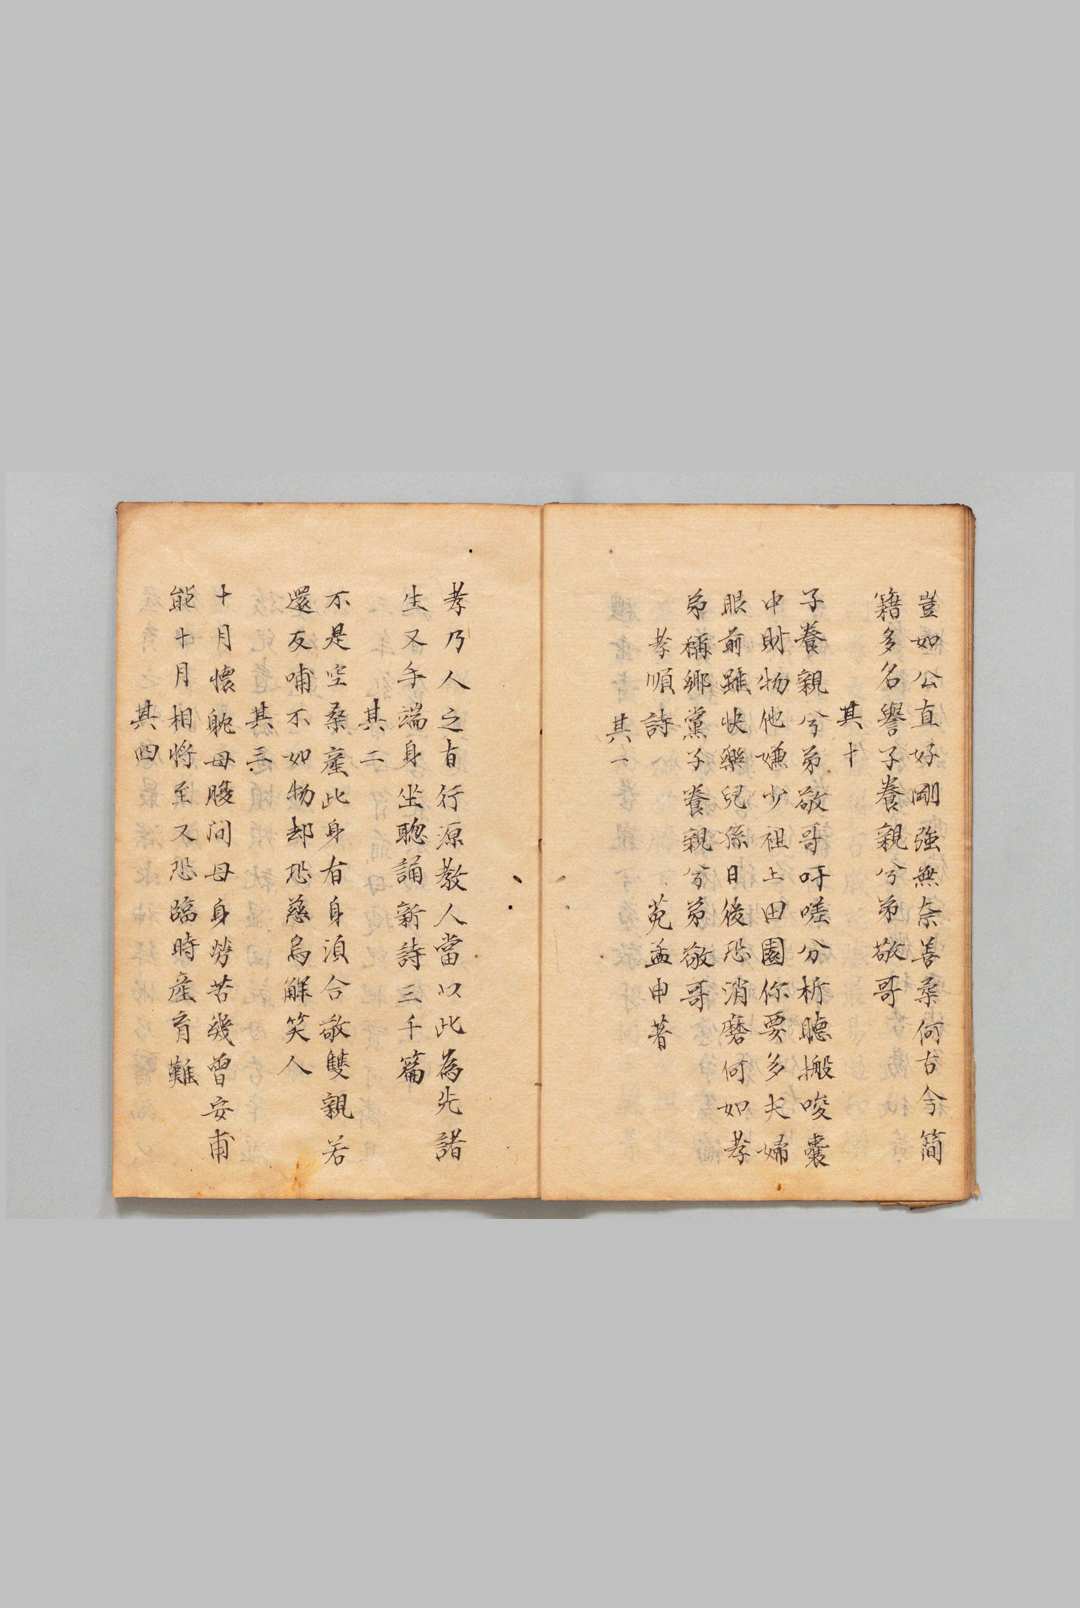 豈如公直好剛強無柰善柔何古今簡
籍多名譽子養親兮弟敬哥
其十
子養親兮弟敬哥吁嗟分析聽搬唆囊
中財物他嫌少祖上田園你要多夫婦
眼前雖快樂兒孫日後恐消磨何如孝
弟稱鄉黨子養親兮弟敬哥
孝順詩 范孟申著
其一
孝乃人之百行源教人當以此為先諸
生叉手端身坐聰誦新詩三千篇
其二
不是空桑產此身有身須合敬雙親若
還反哺不如物却恐慈烏解笑人
其三
十月懷躭母腹间母身勞苦幾曾安甫
能十月相將至又恐臨時產育難
其四